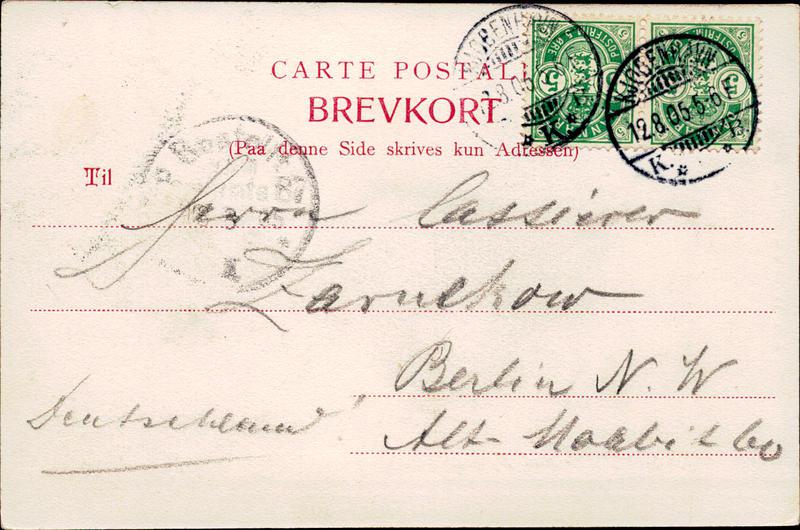 CARTE POSTALE
BREVKORT
(Paa denne Side skrives kun Adressen)
POSTFRIM. 5 ØRE
5
5
KJØBENHAVN
12.8.05.5-6 E
K. B.
Til
Herrn Cassierer
Zarnekow
Berlin N. W.
Deutschland!
Alt-Moabit 60